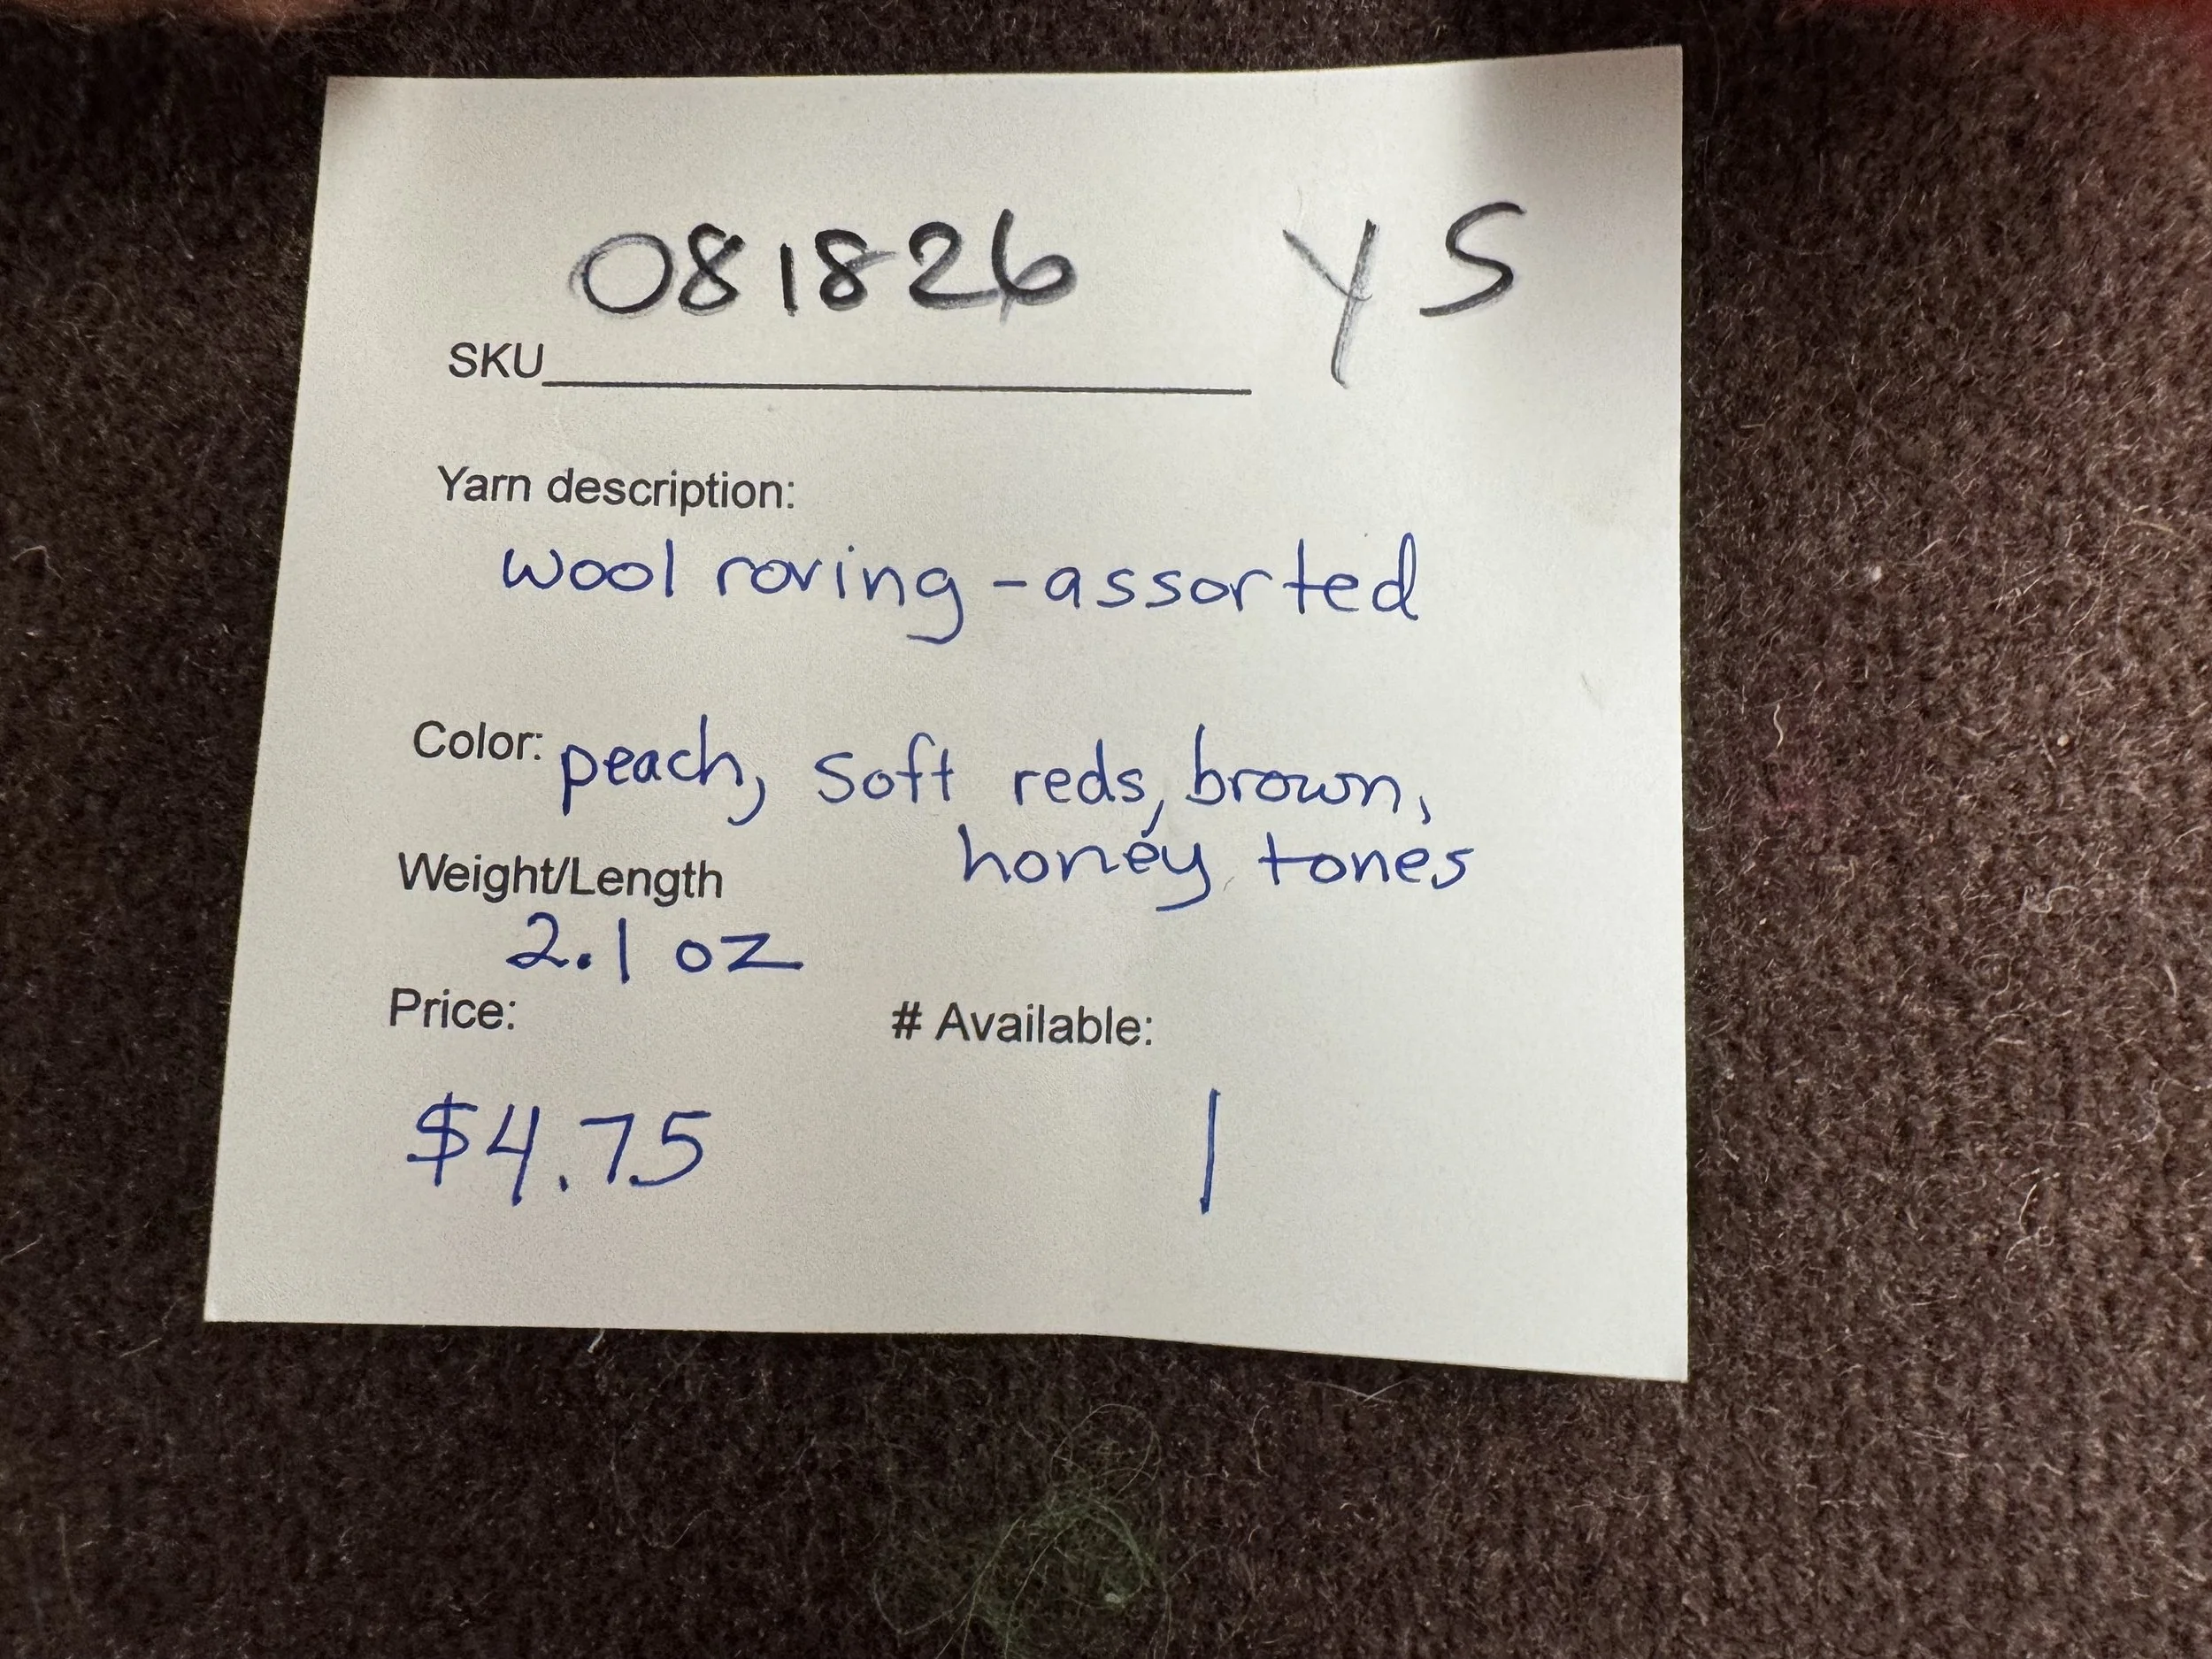 081826 YS
SKU
Yarn description:
wool roving - assorted
Color: peach, soft reds, brown,
honey tones
Weight/Length
2.1 oz
Price: # Available:
$4.75 1